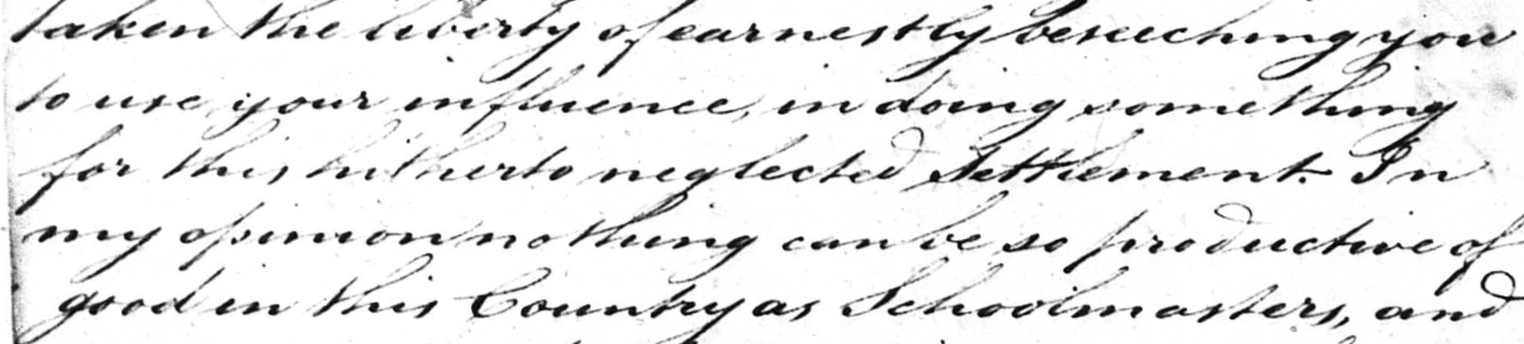 taken the liberty of earnestly beseeching you
to use your influence, in doing something
for this hitherto neglected Settlement. In
my opinion nothing can be so productive of
good in this Country as Schoolmasters, and